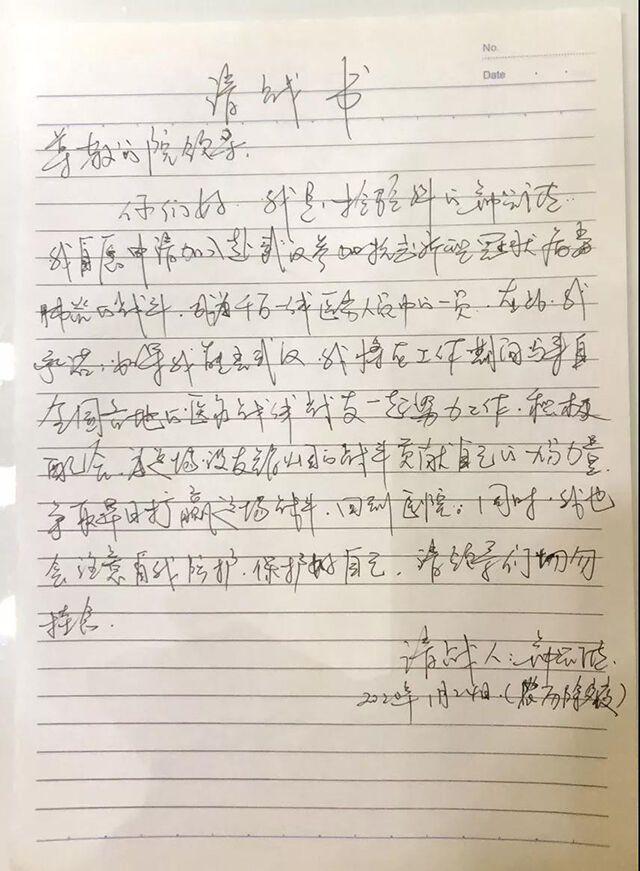 No.
Date
请战书
尊敬的院领导:
你们好,我是检验科的钟
我自愿申请加入赴武汉参加抗击新型冠状病毒
肺炎的战斗,成为千百一线医务人员中的一员,在此,我
承诺:如果我能去武汉,我将在工作期间与来自
全国各地的医务战线战友一起努力工作,积极
配合,为这场没有硝烟的战斗贡献自己的一份力量
争取早日打赢这场战斗,回到医院。同时,我也
会注意自我防护,保护好自己,请领导们切勿
挂念.
请战人:钟
2020年1月24日.(农历除夕夜)